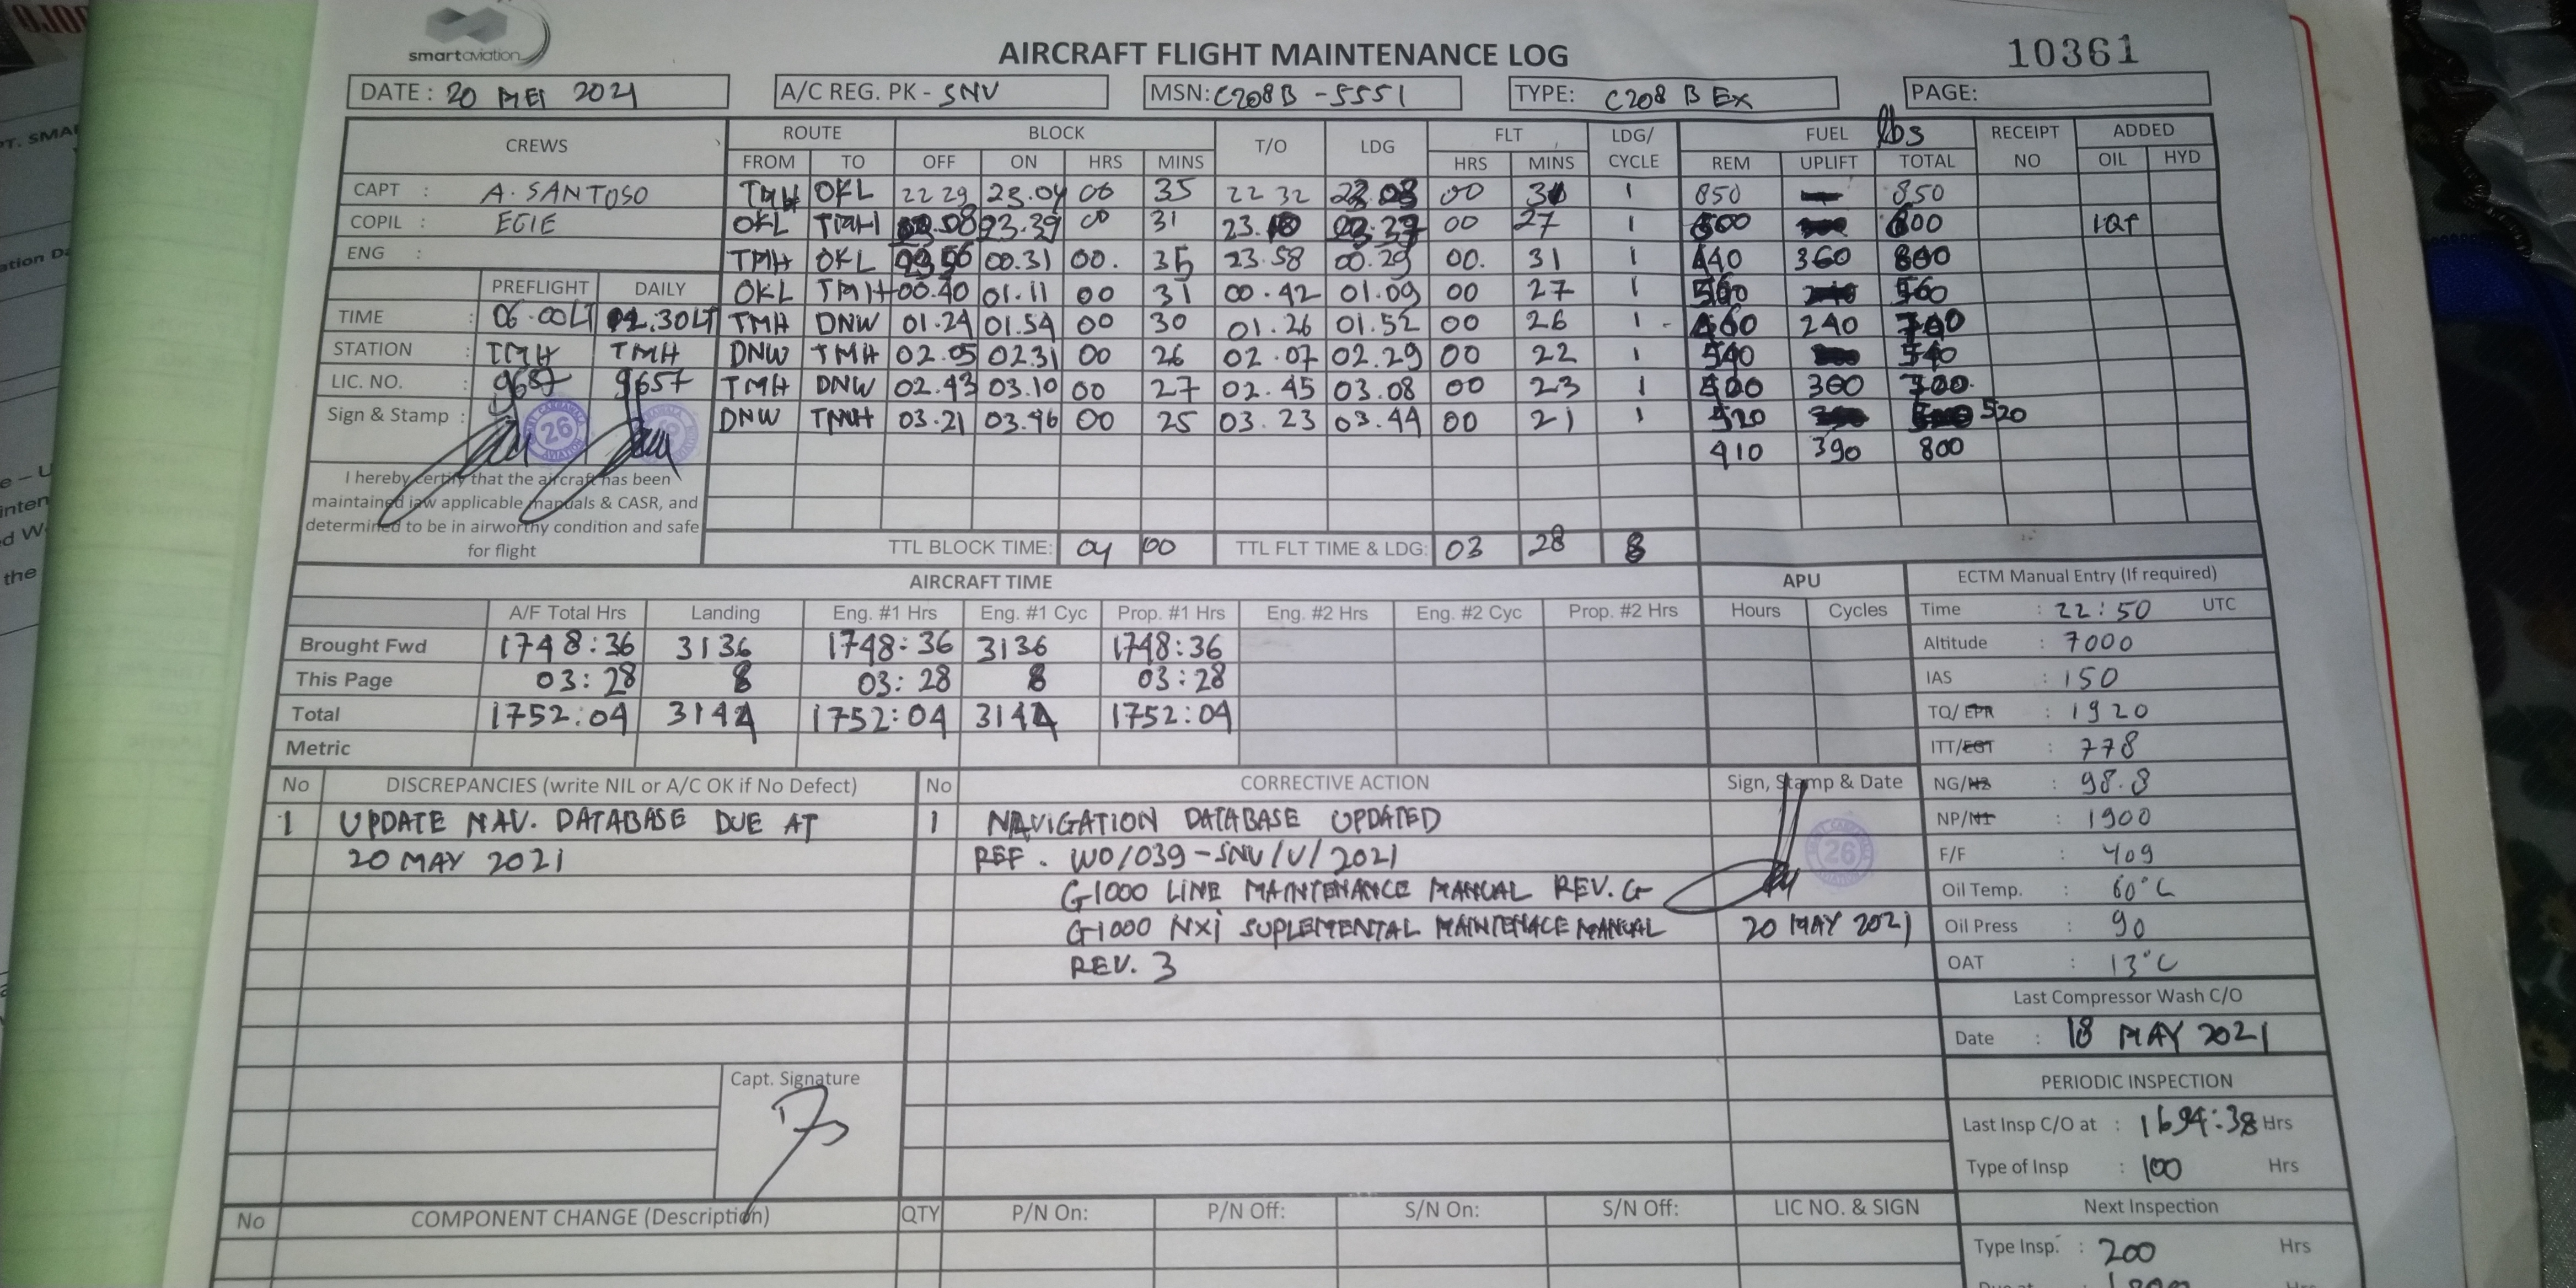 smartaviation
AIRCRAFT FLIGHT MAINTENANCE LOG
10361
DATE : 20 MEI 2021
A/C REG. PK - SNV
MSN: C208B - 5551
TYPE: C208 B EX
PAGE:
CREWS ROUTE BLOCK T/O LDG FLT LDG/ CYCLE FUEL lbs RECEIPT NO ADDED
FROM TO OFF ON HRS MINS HRS MINS REM UPLIFT TOTAL OIL HYD
CAPT : A. SANTOSO TMH OKL 22 29 23.04 00 35 22 32 00 1 850 – 850
COPIL : EGIE OKL TMH 23.39 00 31 00 27 1 600 1QT
ENG : TMH OKL 00.31 00. 35 23.58 00.29 00. 31 1 440 360 800
PREFLIGHT DAILY OKL TMH 00.40 01.11 00 31 00.42 01.09 00 27 1 560 560
TIME : 06.00LT TMH DNW 01.24 01.54 00 30 01.26 01.52 00 26 1 460 240
STATION : TMH TMH DNW TMH 02.05 02.31 00 26 02.07 02.29 00 22 1 540 540
LIC. NO. : 9657 9657 TMH DNW 02.43 03.10 00 27 02.45 03.08 00 23 1 400 300 700
Sign & Stamp : DNW TMH 03.21 03.46 00 25 03.23 03.44 00 21 1 520 520
410 390 800
26
I hereby certify that the aircraft has been
maintained iaw applicable manuals & CASR, and
determined to be in airworthy condition and safe
for flight
TTL BLOCK TIME: 04 00 TTL FLT TIME & LDG: 03 28 8
AIRCRAFT TIME APU
A/F Total Hrs Landing Eng. #1 Hrs Eng. #1 Cyc Prop. #1 Hrs Eng. #2 Hrs Eng. #2 Cyc Prop. #2 Hrs Hours Cycles
Brought Fwd 1748:36 3136 1748:36 3136 1748:36
This Page 03:28 8 03:28 8 03:28
Total 1752:04 3144 1752:04 3144 1752:04
Metric
ECTM Manual Entry (If required)
Time : 22:50 UTC
Altitude : 7000
IAS : 150
TQ/ EPR : 1920
ITT/EGT : 778
NG/N2 : 98.8
NP/N1 : 1900
F/F : 409
Oil Temp. : 60°C
Oil Press : 90
OAT : 13°C
Last Compressor Wash C/O
Date : 18 MAY 2021
PERIODIC INSPECTION
Last Insp C/O at : 1694:38 Hrs
Type of Insp : 100 Hrs
Next Inspection
Type Insp. : 200 Hrs
No DISCREPANCIES (write NIL or A/C OK if No Defect) No CORRECTIVE ACTION Sign, Stamp & Date
1 UPDATE NAV. DATABASE DUE AT 1 NAVIGATION DATABASE UPDATED
20 MAY 2021 REF. WO/039-SNV/V/2021
26
G1000 LINE MAINTENANCE MANUAL REV. G
G1000 NXi SUPLEMENTAL MAINTENACE MANUAL 20 MAY 2021
REV. 3
Capt. Signature
No COMPONENT CHANGE (Description) QTY P/N On: P/N Off: S/N On: S/N Off: LIC NO. & SIGN